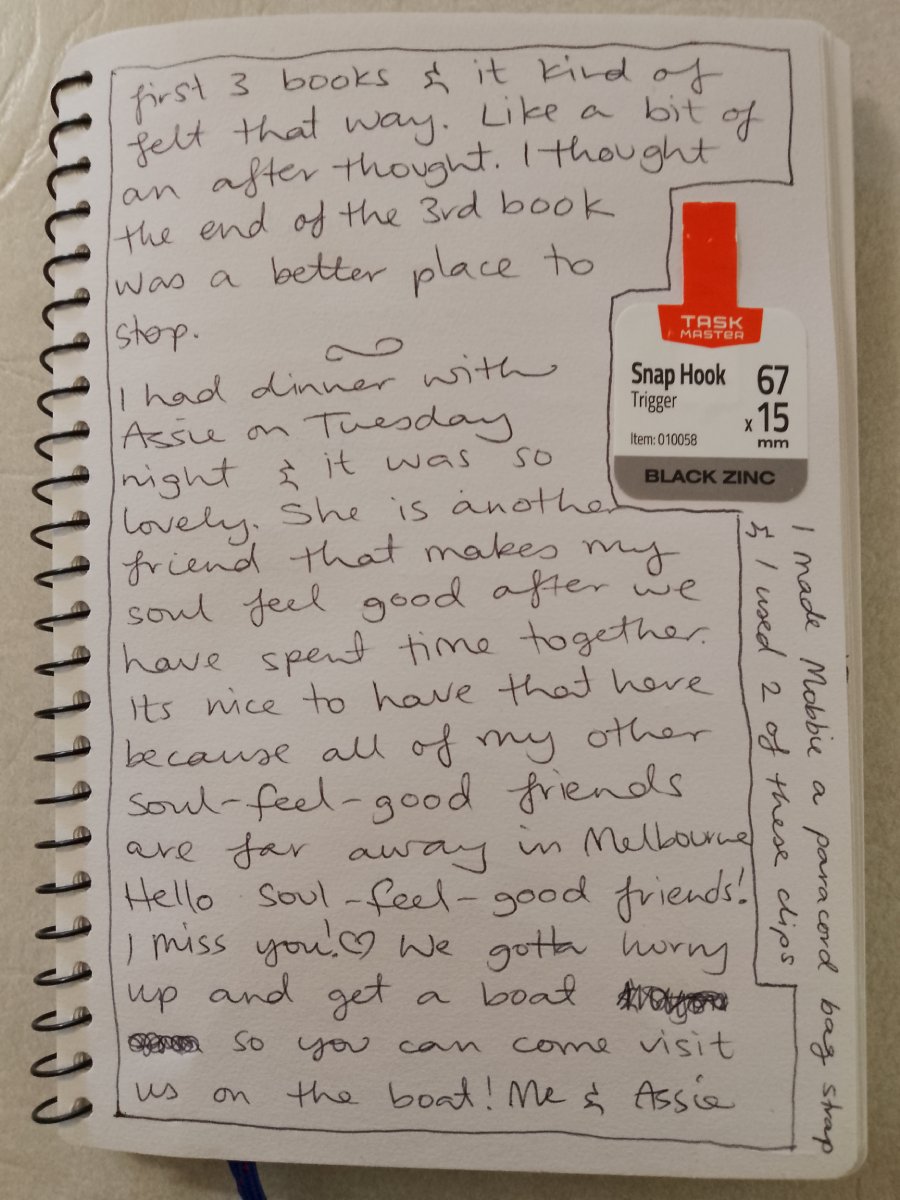 first 3 books & it kind of
felt that way. Like a bit of
an after thought. I thought
the end of the 3rd book
was a better place to
stop.
I had dinner with
Assie on Tuesday
night & it was so
lovely. She is another
friend that makes my
soul feel good after we
have spent time together.
Its nice to have that here
because all of my other
soul-feel-good friends
are far away in Melbourne
Hello soul-feel-good friends!
I miss you!♡ We gotta hurry
up and get a boat
so you can come visit
us on the boat! Me & Assie
TASK
MASTER
Snap Hook
Trigger
67
x 15
mm
Item: 010058
BLACK ZINC
I made Mobbie a paracord bag strap
& I used 2 of these clips